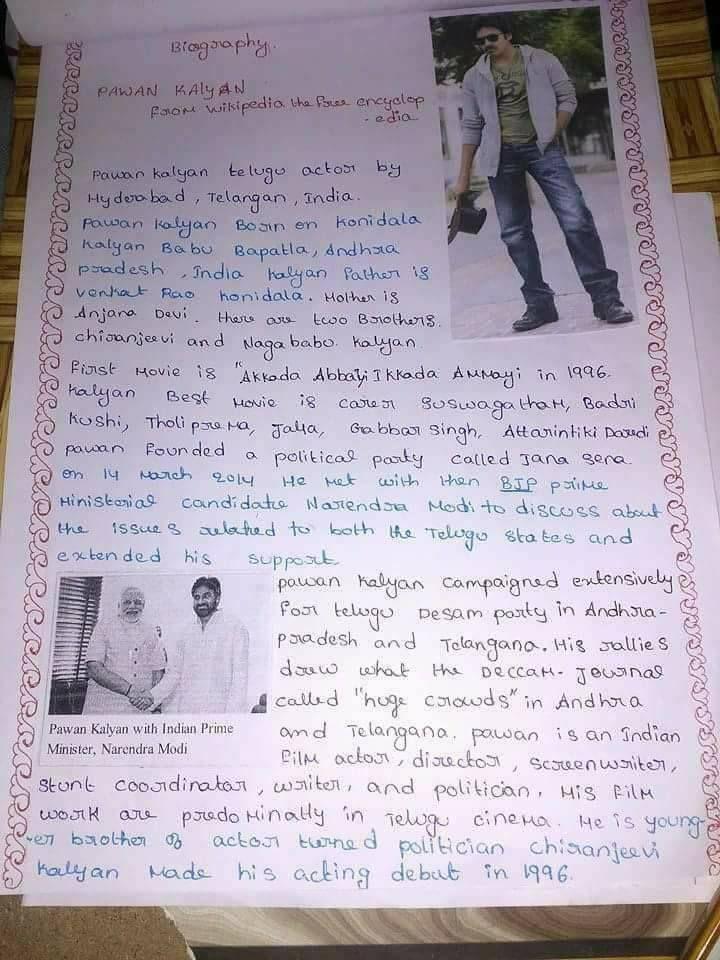 Biography.
PAWAN KALYAN
From wikipedia the free encyclop
-edia
Pawan kalyan telugu actor by
Hyderabad, Telangan, India.
Pawan Kalyan Born on Konidala
Kalyan Babu Bapatla, Andhra
pradesh, India kalyan Father is
venkat Rao konidala. Mother is
Anjana Devi. there are two Brothers.
chiranjeevi and Naga babu. Kalyan
First Movie is "Akkada Abbayi Ikkada Ammayi in 1996.
Kalyan Best Movie is carer Suswagatham, Badri
Kushi, Tholiprema, Jalsa, Gabbar Singh, Attarintiki Daredi
pawan Founded a political party called Jana Sena.
on 14 March 2014 He Met with then BJP prime
Ministerial candidate Narendra Modi to discuss about
the issues related to both the Telugu states and
extended his support
pawan Kalyan campaigned extensively
For telugu Desam party in Andhra-
pradesh and Telangana. His rallies
drew what the DECCAN-Journal
called "huge crowds" in Andhra
and Telangana. pawan is an Indian
Film actor, director, screenwriter,
Stunt coordinator, writer, and politician. His Film
work are predominatly in Telugu cinema. He is young-
-er brother of actor turned politician chiranjeevi
Kalyan Made his acting debut in 1996.
Pawan Kalyan with Indian Prime
Minister, Narendra Modi